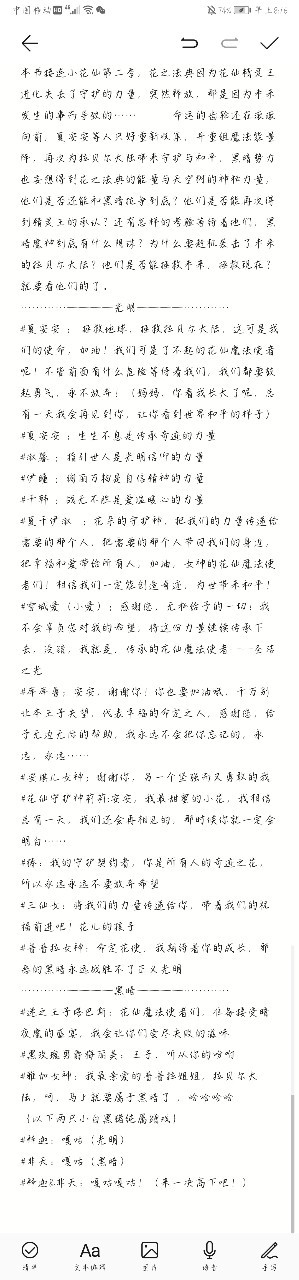 中国移动 HD 4G
74% 上8:16
本书接连小花仙第二季，花之法典因为花仙精灵王
进化失去了守护的力量，突然释放，那是因为未来
发生的事而导致的…… 命运的齿轮还在滚滚
向前，夏安安等人只好重新收集，并重组魔法能量
阵，再次为拉贝尔大陆带来守护与和平，黑暗势力
也妄想得到花之法典的能量与天空洞的神秘力量，
他们是否还能和黑暗抗争到底？他们是否能再次得
到精灵王的承认？还有怎样的考验等待着他们，黑
暗魔神到底有什么阴谋？为什么要趁机袭击了未来
的拉贝尔大陆？他们是否能拯救未来，拯救现在？
就要看他们的了。
光明
#夏安安：拯救地球，拯救拉贝尔大陆，这可是我
们的使命，加油！我们可是了不起的花仙魔法使者
呢！不管前面有什么危险等待着我们，我们都要鼓
起勇气，永不放弃！（妈妈，你看我长大了呢，总
有一天我会再见到你，让你看到世界和平的样子）
#夏安安：生生不息是传承奇迹的力量
#淑馨：指引世人是光明信仰的力量
#伊瞳：
#千韩：战无不胜是爱温暖心的力量
#夏千伊淑：花朵的守护神，把我们的力量传递给
需要的那个人，把需要的那个人带回我们的身边，
把幸福和爱带给所有人，加油，女神的花仙魔法使
者们！相信我们一定能创造奇迹，为世带来和平！
#雪城爱（小爱）：感谢您，无私给予的一切；我
不会辜负您对我的希望，将这份力量继续传承下
去，没错，我就是，传承的花仙魔法使者——
之光
安安，谢谢你！你也要加油哦，千万别
让本王子失望，代表幸福的命定之人，感谢您，给
予无边无际的帮助，我永远不会把你忘记的，永
远，永远……
#安琪儿女神：谢谢你，另一个坚强而又勇敢的我
#花仙守护神莉莉:安安，我最甜蜜的小花，我相信
总有一天，我们还会再相见的，那时候你就一定会
明白……
我的守护契约者，你是所有人的奇迹之花，
所以永远永远不要放弃希望
#三仙女：将我们的力量传递给你，带着我们的祝
福前进吧！花儿的孩子
#普普拉女神：命定花使，我期待着你的成长，邪
恶的黑暗永远战胜不了正义光明
黑暗
#迷之王子塔巴斯：花仙魔法使者们，准备接受暗
夜魔的盛宴，我会让你们尝尽失败的滋味
#黑玫瑰男爵梅丽美：王子，听从你的吩咐
#雅加女神：我最亲爱的普普拉姐姐，拉贝尔大
陆，呵，马上就要属于黑暗了，哈哈哈哈
（以下两只小白黑猪纯属路线）
嘎咕（光明）
#非天：嘎咕（黑暗）
&非天：嘎咕嘎咕！（来一决高下吧！）
清单
Aa
文本编辑
图片
语音
手写